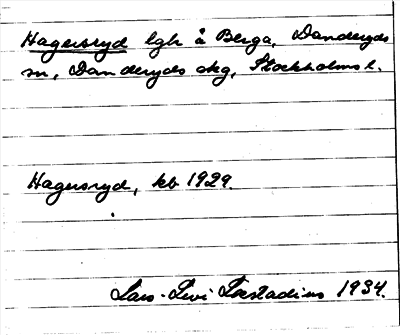 Hagersryd lgh å Berga, Danderyds
sn, Danderyds skg, Stockholms l.
Hagersryd, kb 1929.
Lars-Levi Læstadius 1934.